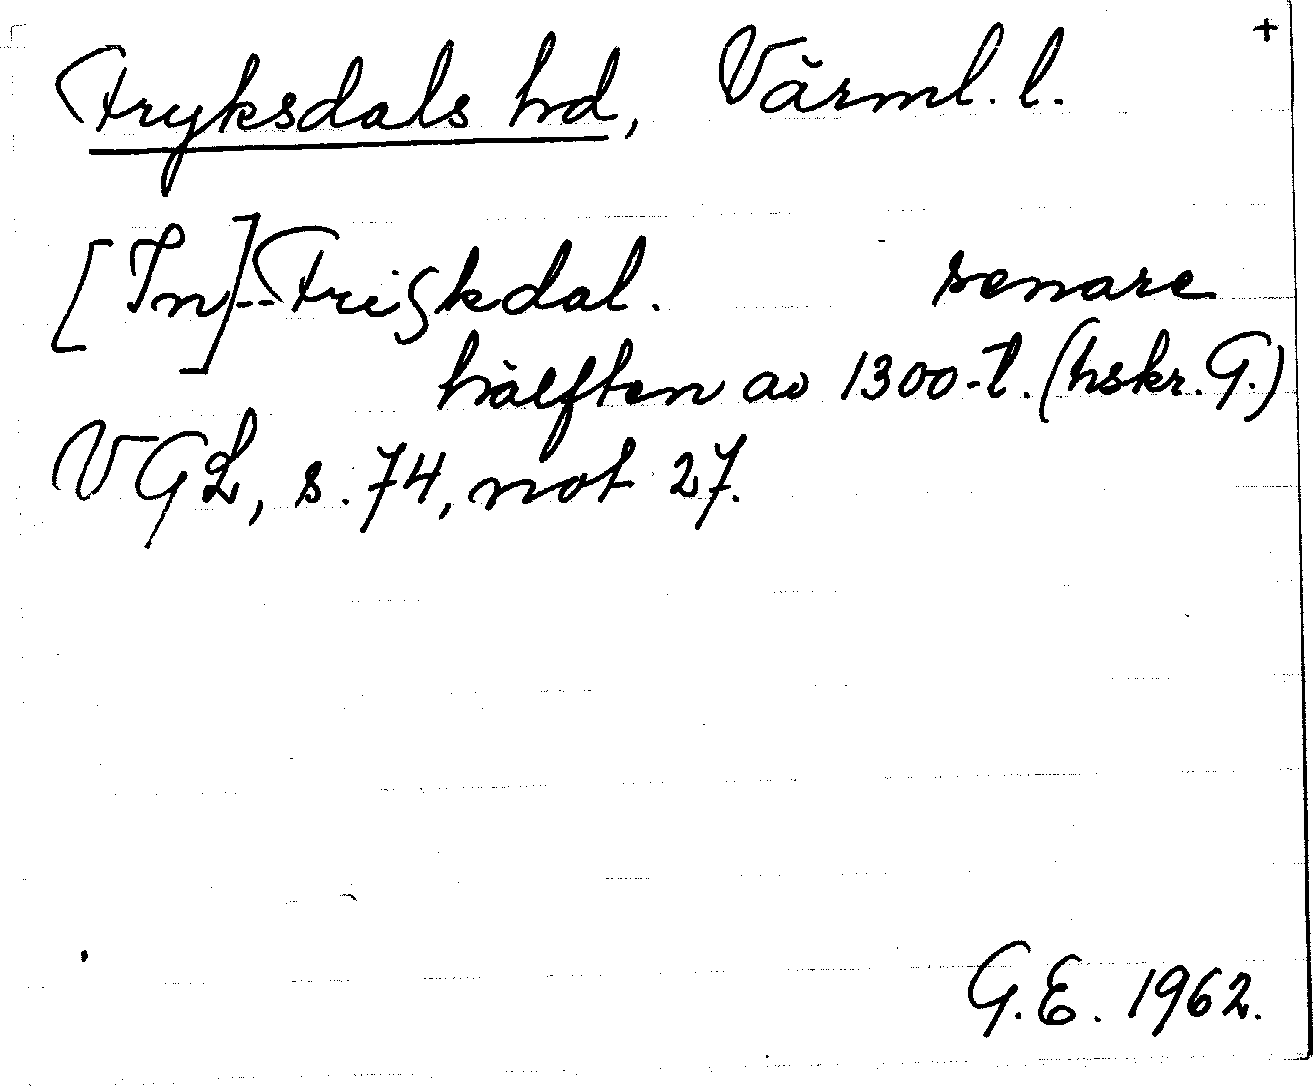 +
Fryksdals hd, Värml. l.
[In]--Friskdal. senare
hälften av 1300-t. (hskr. G.)
VGL, s. 74, not 27.
G.E. 1962.